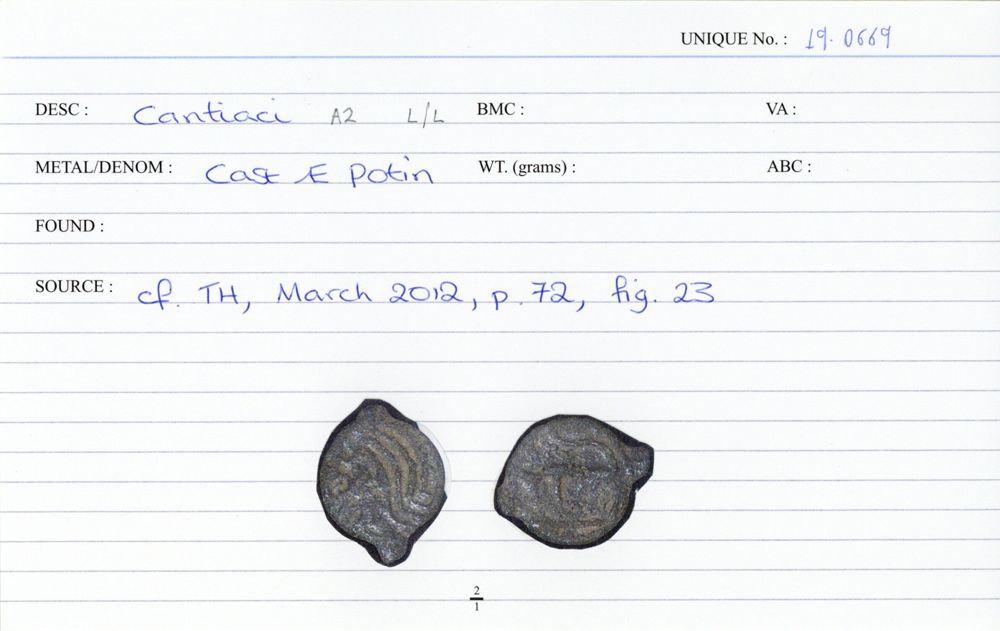 UNIQUE No. : 19.0669
DESC : Cantiaci A2 L/L BMC : VA :
METAL/DENOM : Cast Æ Potin WT. (grams) : ABC :
FOUND :
SOURCE : cf. TH, March 2012, p.72, fig. 23
2
1